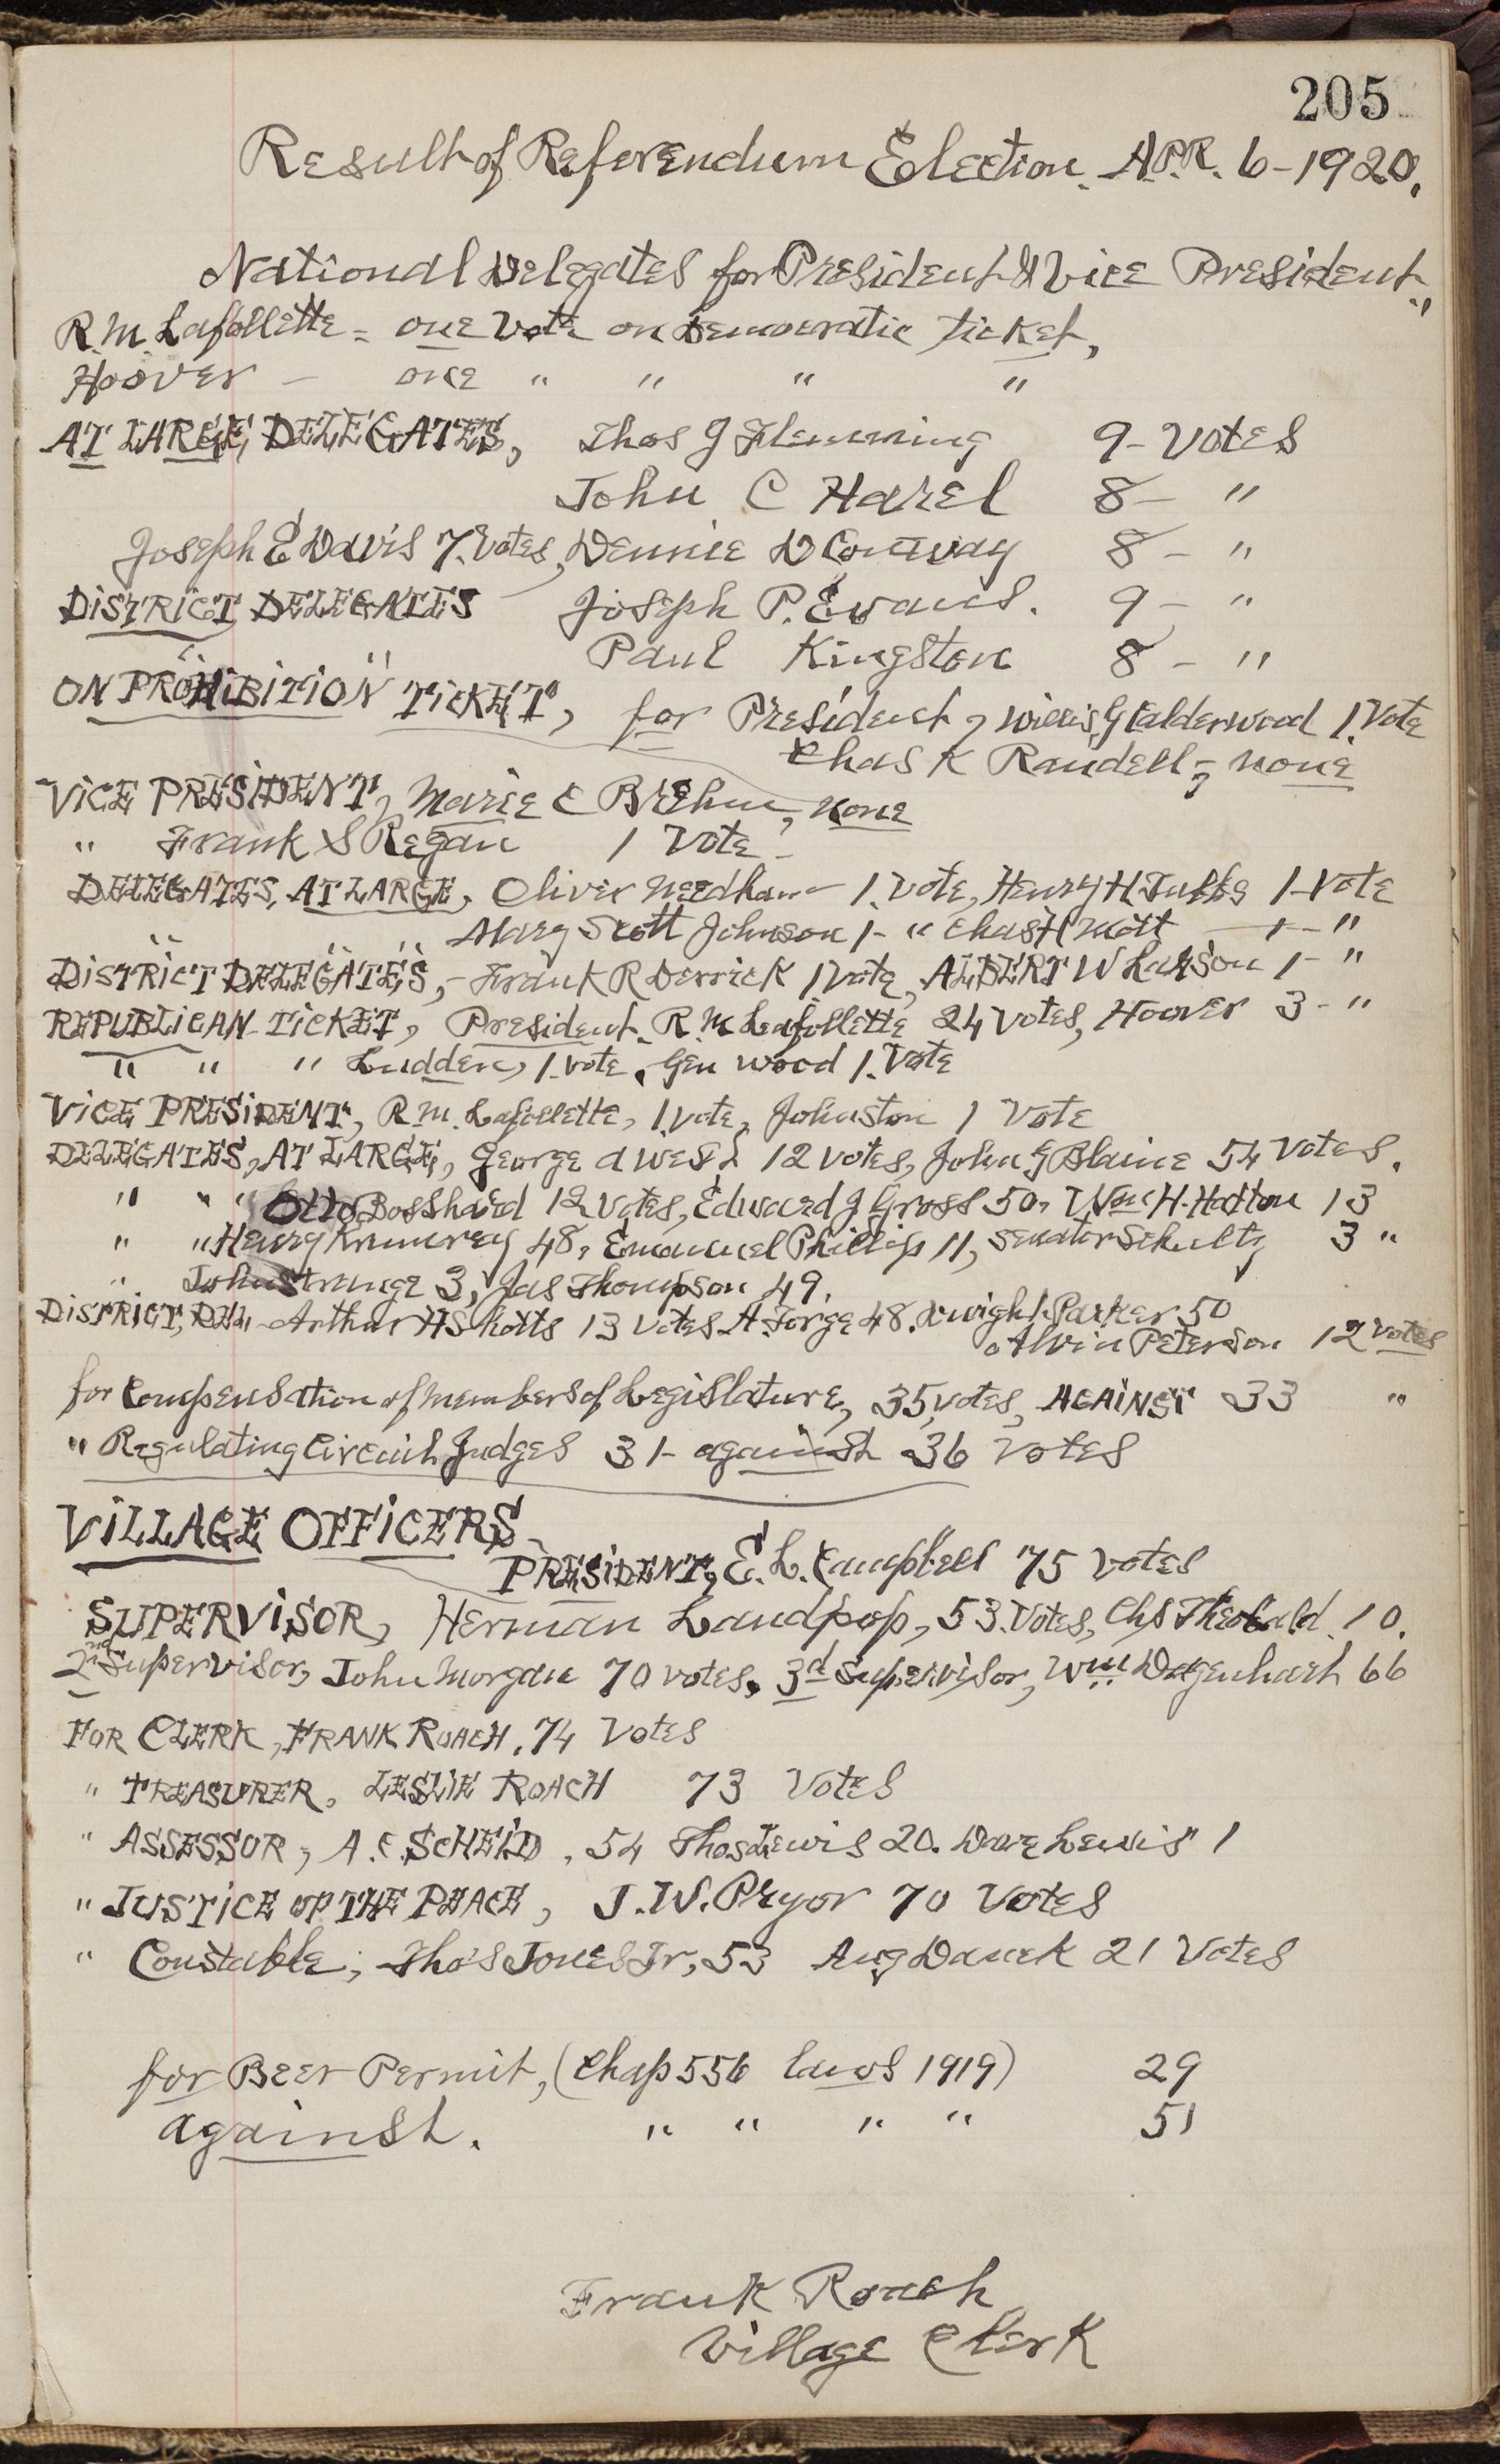 205
Result of Referendum Election. APR. 6-1920.
National Delegates for President & Vice President
R.M. Lafollette = one Vote on Democratic Ticket,
Hoover - one " " " "
AT LARGE DELEGATES, Thos J Flemming 9- Votes
John C Harel 8- "
Joseph E Davis 7. Votes, Dennie D Conway 8- "
DISTRICT DELEGATES Joseph P. Evans. 9- "
Paul Kingston 8- "
ON "PROHIBITION" TICKET, for President, Willis G Calderwood 1. Vote
Chas K Randell, none
VICE PRESIDENT, Marie C Brehm, none
" Frank S Regan 1 Vote -
DELEGATES, AT LARGE, Oliver Needham - 1. Vote, Henry H Tubbs 1-Vote
" " " Mary Scott Johnson 1- " Chas H Mott 1- "
DISTRICT DELEGATES, - Frank R Derrick 1 Vote, ALBERT W Larson 1- "
REPUBLICAN TICKET, President. R.M Lafollette 24 Votes, Hoover 3- "
" " " Ludden, 1. Vote, Gen Wood 1. Vote
VICE PRESIDENT, R.M. Lafollette, 1. Vote, Johnston 1 Vote
DELEGATES, AT LARGE, George A West 12 Votes, John J Blaine 54 Votes.
" " " Otto Bosshard 12 Votes, Edward J Gross 50, Wm H. Hatton 13
" " Henry Krumrey 48, Emanuel Philip 11, Senator Schultz 3 "
" John Strange 3, Jas Thompson 49.
DISTRICT, DEL, Arthur H Shotts 13 Votes A. Forge 48. Dwight Parker 50
Alvin Peterson 12 Votes
for Compensation of members of Legislature, 35, Votes, AGAINST 33 "
" Regulating Circuit Judges 31- against 36 Votes
VILLAGE OFFICERS
PRESIDENT, E.L. Campbell 75 Votes
SUPERVISOR, Herman Landpop, 53. Votes, Chs Theobald 10.
2nd Supervisor, John Morgan 70 votes. 3d Supervisor, Wm Dagenhart 66
FOR CLERK, FRANK ROACH. 74 Votes
" TREASURER, LESLIE ROACH 73 Votes
" ASSESSOR, A.C. SCHEID, 54 Thos Lewis 20. Dave Lewis 1
" JUSTICE OF THE PEACE, J.W. Pryor 70 Votes
" Constable, Thos Jones Jr, 53 Aug Danek 21 Votes
for Beer Permit, (Chap 556 laws 1919) 29
against. " " " " 51
Frank Roach
Village Clerk